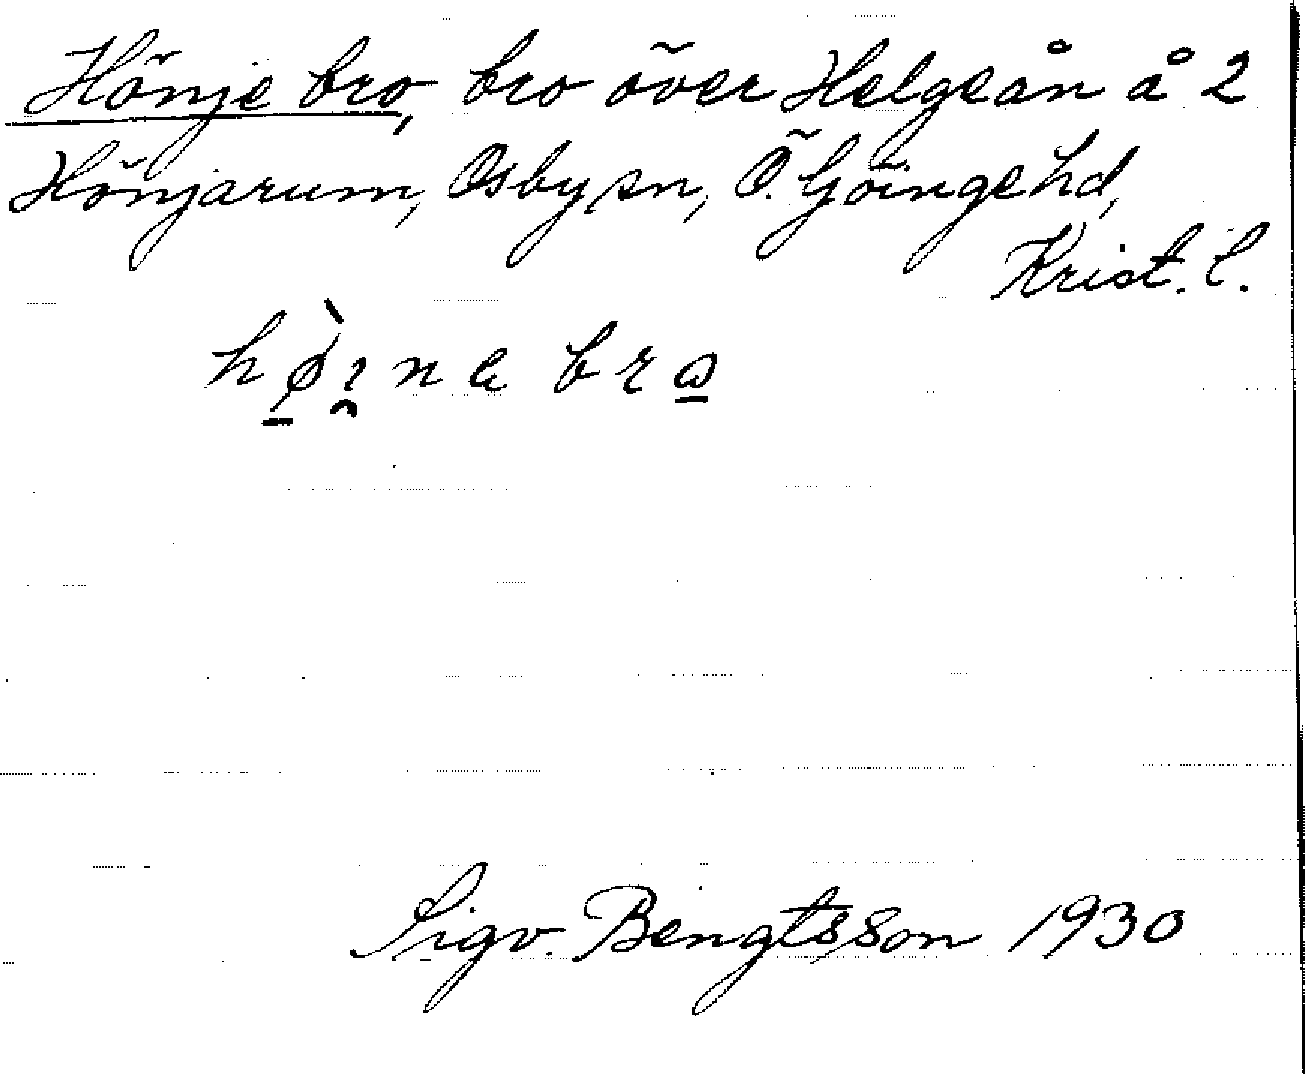 Hönje bro, bro över Helgeån å 2
Hönjarum, Osby sn, Ö. Göinge hd,
Krist. l.
bro
Sigv. Bengtsson 1930